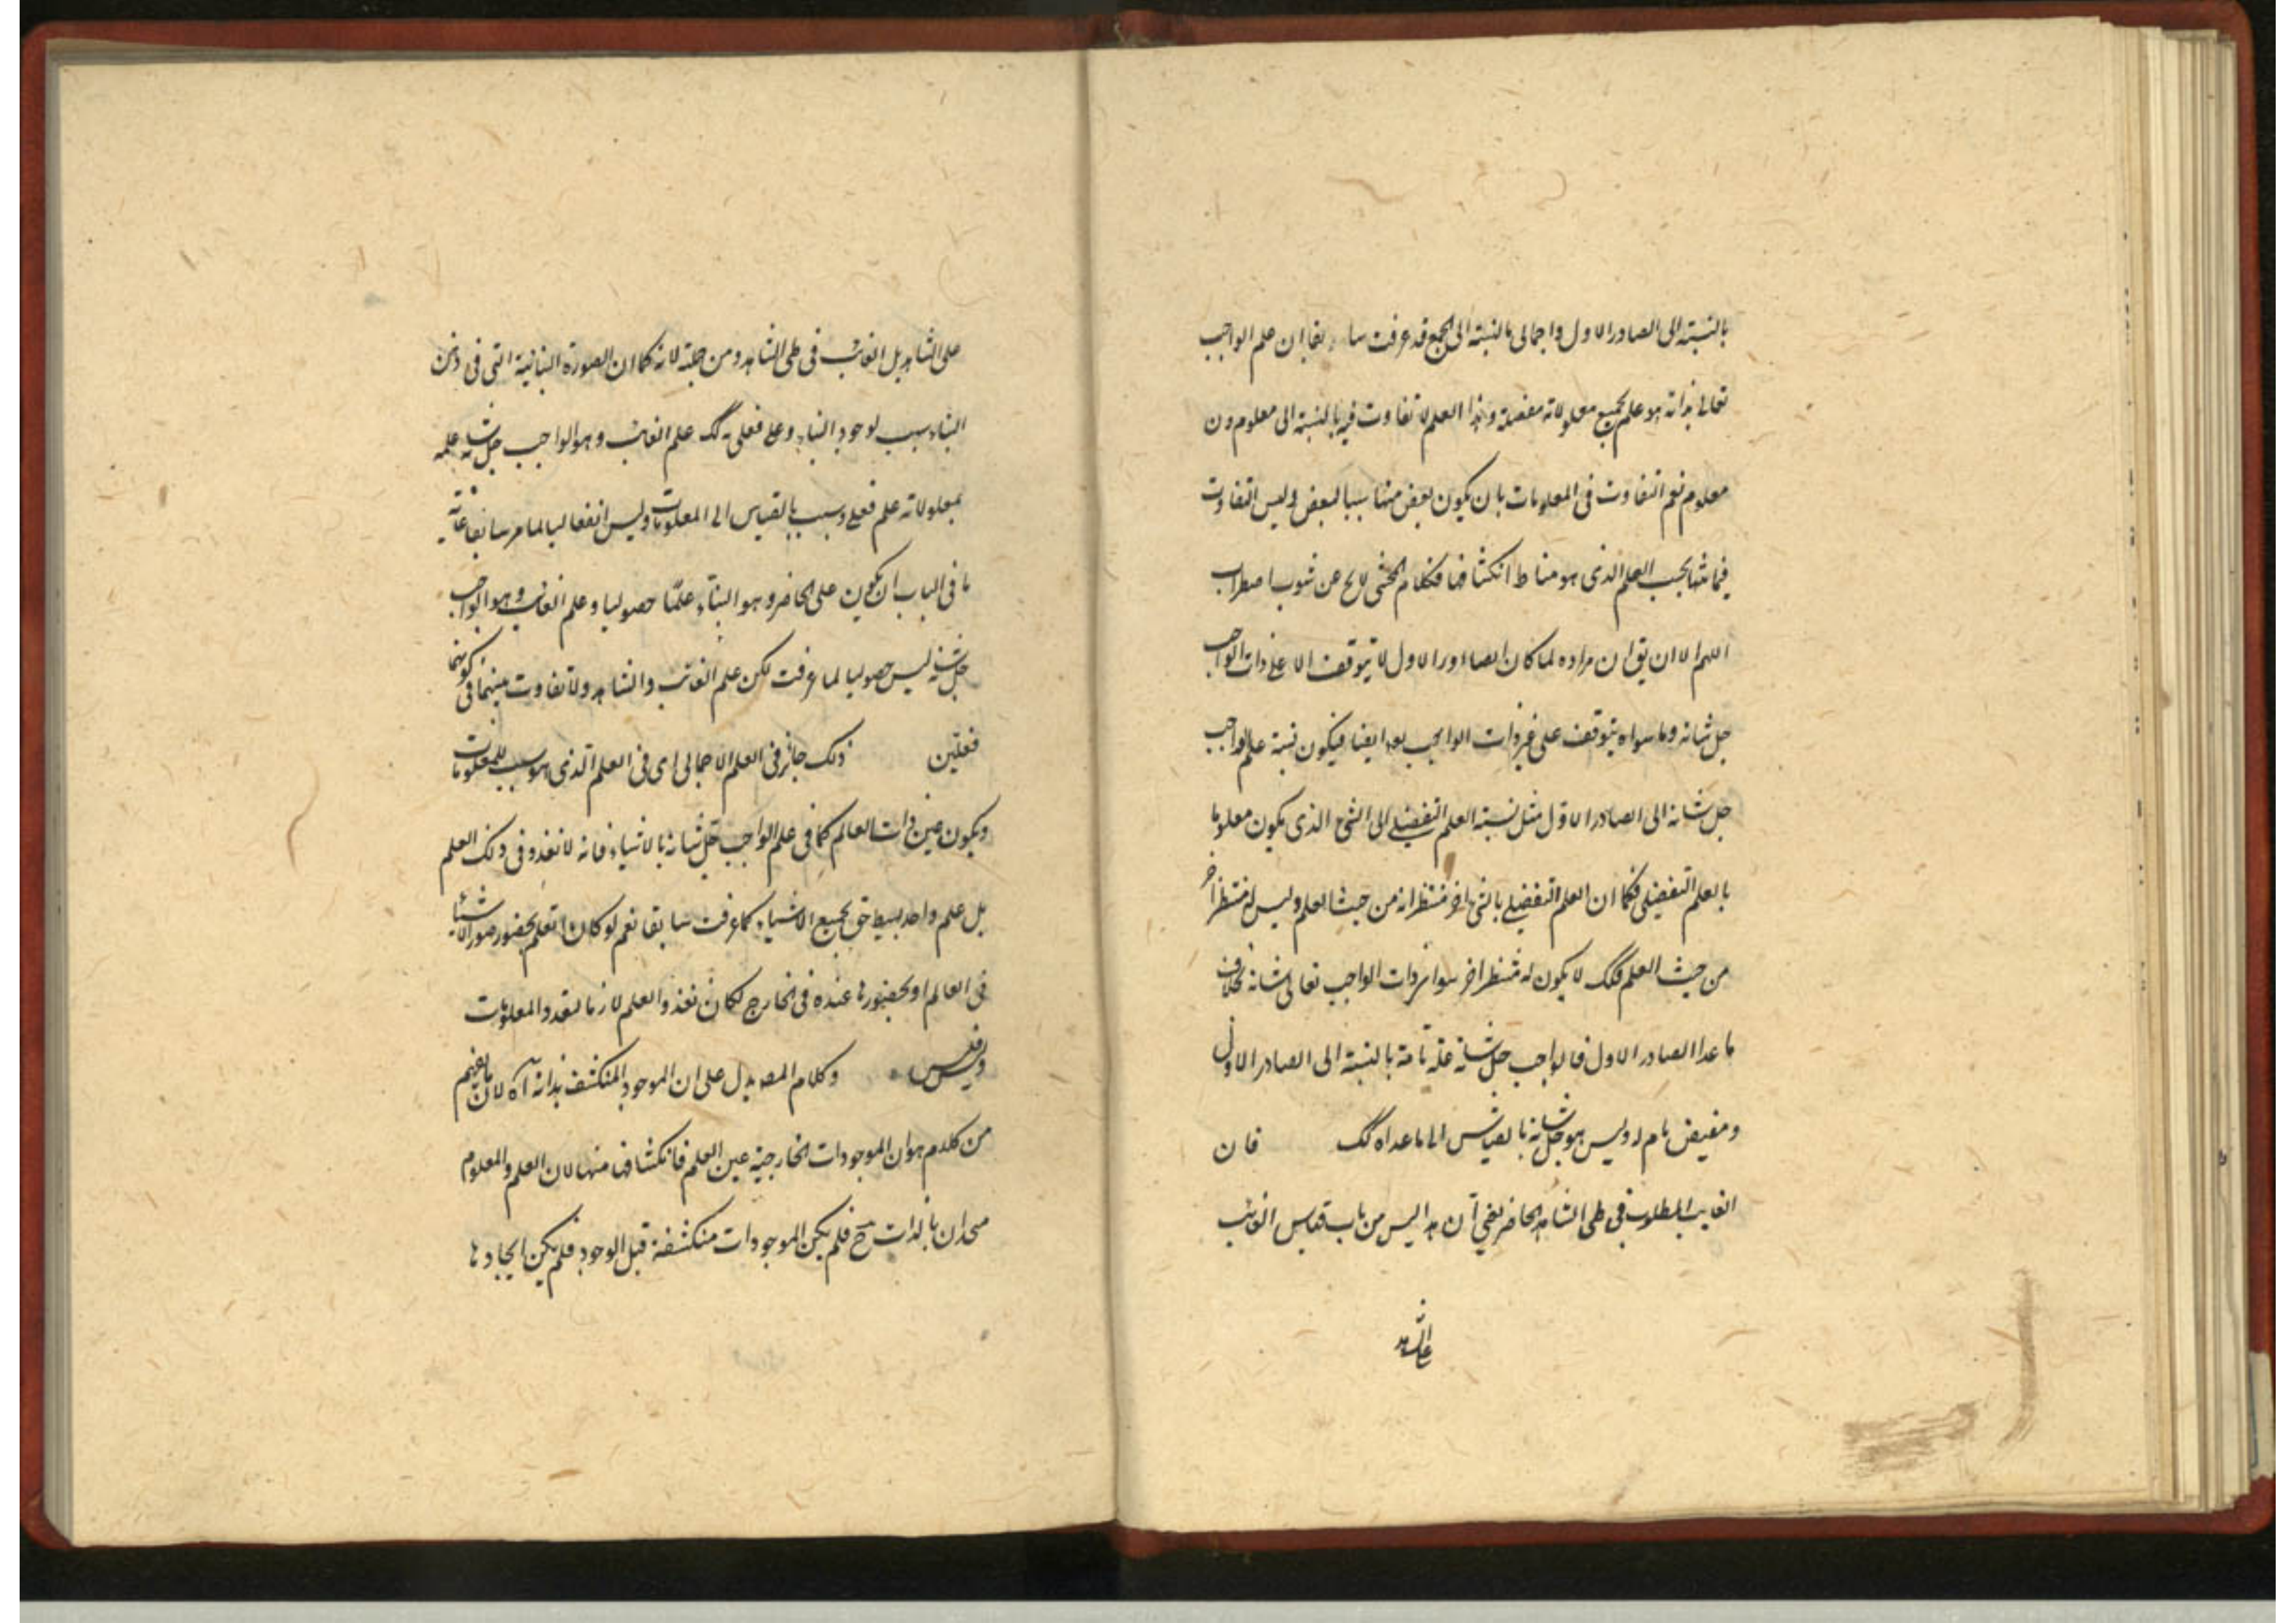 بالنسبة الى الصادر الاول واجمالى بالنسبة الى الجميع قد عرفت سابقا ان علم الواجب
تعالى بذاته هو علم بجميع معلولاته مفصلة وهذا العلم لا تفاوت فيه بالنسبة الى معلوم دون
معلوم نعم التفاوت فى المعلومات بان يكون بعض منها سببا لبعض وليس التفاوت
فيما منها بحسب العلم الذى هو مناط انكشافها فكلام المحشى لا يخ عن شوب اضطراب
اللهم الا ان يق ان مراده لما كان الصادر الاول لا يتوقف الا على ذات الواجب
جل شانه وما سواه يتوقف على غير ذات الواجب ايضا فيكون نسبة علم الواجب
جل شانه الى الصادر الاول مثل نسبة العلم التفصيلى الى الشئ الذى يكون معلوما
بالعلم التفصيلى فكما ان العلم التفصيلى من حيث العلم وليس له منتظر آخر
من حيث العلم فكك لا يكون له منتظر اخر سوا ذات الواجب تعالى شانه بخلاف
ما عدا الصادر الاول فالواجب جل شانه علة تامة بالنسبة الى الصادر الاول
ومفيض تام له وليس هو جل شانه بالقياس الى ما عداه كك فان
الغايب المطلوب فى طى الشاهد الحاضر يعنى ان هذا ليس من باب قياس الغائب
على الشاهد
على الشاهد بل الغائب فى طى الشاهد ومن جملته لانه كما ان الصورة البنائية التى فى ذهن
البناء سبب لوجود البناء وعلم فعلى له كك علم الغائب وهو الواجب جل شانه علمه
بمعلولاته علم فعلى وسبب بالقياس الى المعلومات وليس انفعاليا لما مر سابقا غاية
ما فى الباب ان يكون علم الحاضر وهو البناء علما حصوليا وعلم الغائب وهو الواجب
جل شانه ليس حصوليا لما عرفت لكن علم الغائب والشاهد ولا تفاوت بينهما فى كونهما
فعليين ذلك جائز فى العلم الاجمالى اى فى العلم الذى هو سبب للمعلومات
ويكون عين ذات العالم كما فى علم الواجب جل شانه بالاشياء فانه لا تعدد فى ذلك العلم
بل علم واحد بسيط حق بجميع الاشياء كما عرفت سابقا نعم لو كان العلم بحضور صور الاشياء
فى العالم او بحضورها عنده فى الخارج لكان تعدد العلم لازما لتعدد المعلومات
وليس فليس وكلام المص يدل على ان الموجود المنكشف بذاته آه لان ما يفهم
من كلامه هو ان الموجودات الخارجية عين العلم فانكشافها منها لان العلم والمعلوم
متحدان بالذات ح فلم يكن الموجودات منكشفة قبل الوجود فلم يكن ايجادها